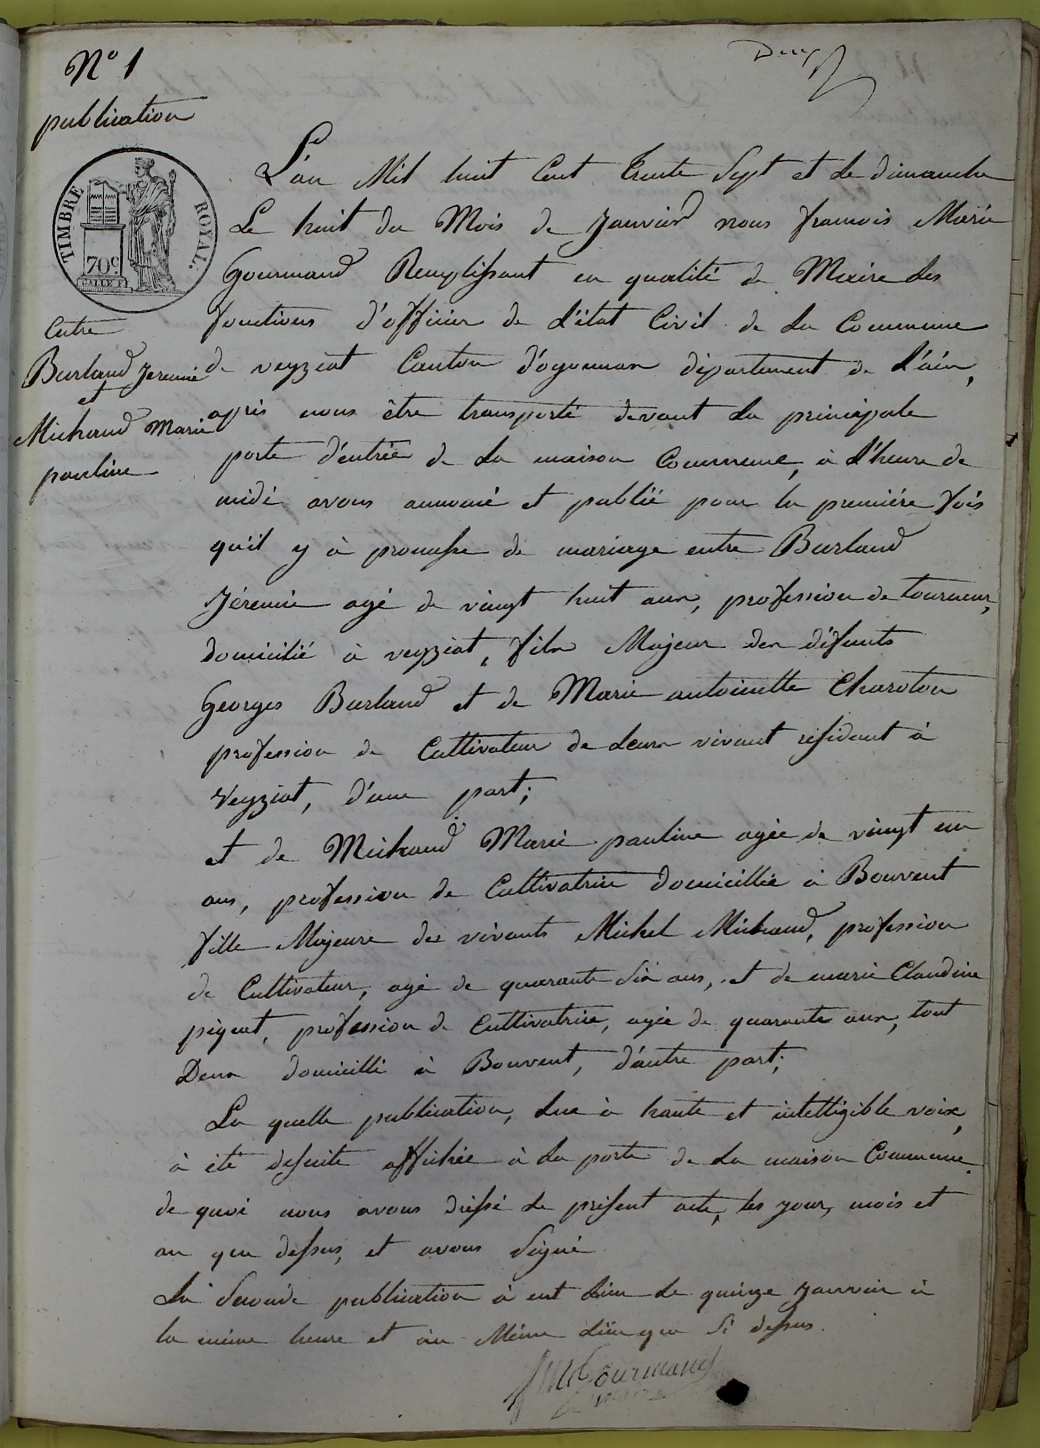 N° 1
publication
TIMBRE ROYAL.
70c
Entre
Burland Jeremie
et
Michaud Marie
pauline
L'an Mil huit Cent Trente Sept et le dimanche
Le huit du Mois de Janvier nous francois Marie
Gourmand Remplissant en qualité de Maire les
fonctions d'officier de l'état Civil de la Commune
de veyziat Canton d'oyonnax département de l'ain,
après nous être transporté devant la principale
porte d'entrée de la maison Commune, à l'heure de
midi avons annoncé et publié pour la première fois
qu'il y à promesse de mariage entre Burland
Jéremie agé de vingt huit ans, profession de tourneur,
domicilié à veyziat, fils Majeur des défunts
Georges Burland et de Marie antoinette Charoton
profession de Cultivateur de leurs vivant résidant à
Veyziat, d'une part;
et de Michaud Marie pauline agée de vingt un
ans, profession de Cultivatrice domicilliée à Bouvent
fille Majeure des vivants Michel Michaud, profession
de Cultivateur, agé de quarante Six ans, et de marie Claudine
pégeat, profession de Cultivatrice, agée de quarante ans, tout
Deux domicilli à Bouvent, d'autre part;
La quelle publication, lue à haute et intelligible voix,
à été desuite affichée à la porte de la maison Commune.
de quoi nous avons dressé le présent acte, les jour, mois et
an que dessus, et avons Signé
La Seconde publication à eut lieu le quinze janvier à
la même heure et au Même lieu que Si dessus.
Gourmand